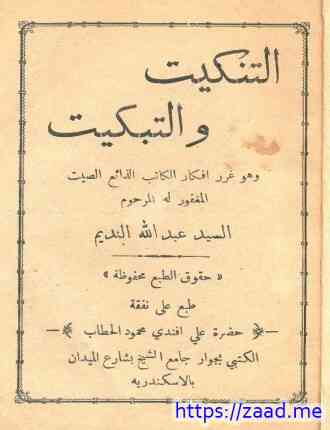 التنكيت
والتبكيت
وهو غرر افكار الكاتب الذائع الصيت
المغفور له المرحوم
السيد عبد الله النديم
« حقوق الطبع محفوظة »
طبع على نفقة
حضرة علي افندي محمود الحطاب
الكتبي بجوار جامع الشيخ بشارع الميدان
بالاسكندريه
https://zaad.me